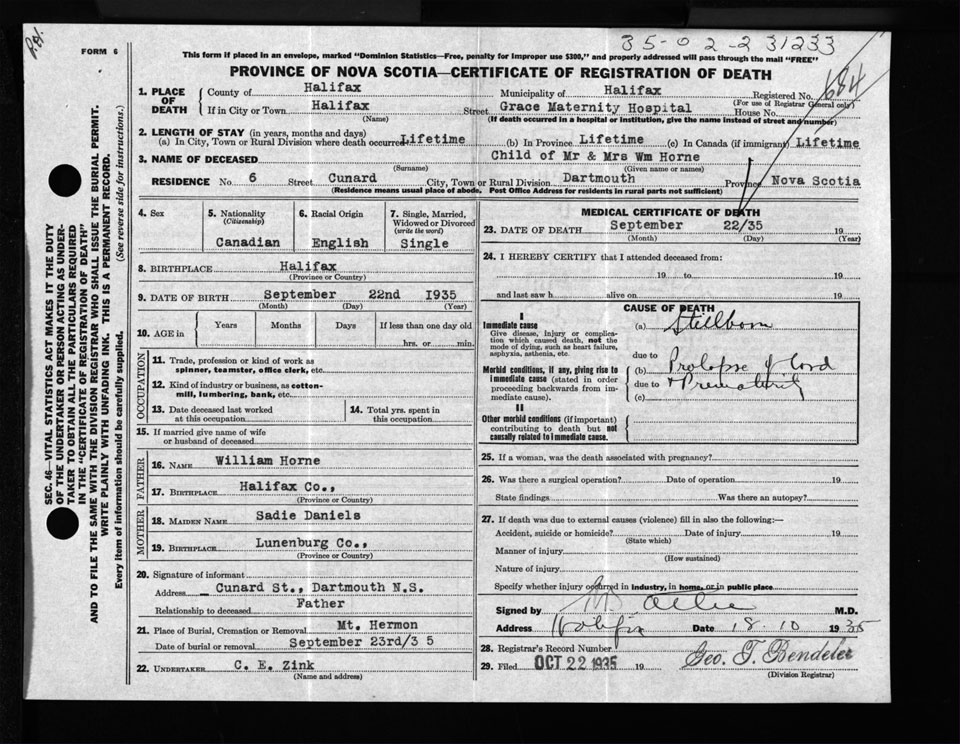 P.H.
35-02-2 31233
FORM 6
This form if placed in an envelope, marked "Dominion Statistics—Free, penalty for improper use $300," and properly addressed will pass through the mail "FREE"
PROVINCE OF NOVA SCOTIA—CERTIFICATE OF REGISTRATION OF DEATH
1. PLACE OF DEATH County of Halifax Municipality of Halifax Registered No. 684
(For use of Registrar General only)
If in City or Town Halifax Street Grace Maternity Hospital House No.
(Name) (If death occurred in a hospital or institution, give the name instead of street and number)
2. LENGTH OF STAY (in years, months and days)
(a) In City, Town or Rural Division where death occurred Lifetime (b) In Province Lifetime (c) In Canada (if immigrant) Lifetime
3. NAME OF DECEASED Child of Mr & Mrs Wm Horne
(Surname) (Given name or names)
RESIDENCE No. 6 Street Cunard City, Town or Rural Division Dartmouth Province Nova Scotia
(Residence means usual place of abode. Post Office Address for residents in rural parts not sufficient)
4. Sex
5. Nationality (Citizenship) Canadian
6. Racial Origin English
7. Single, Married, Widowed or Divorced (write the word) Single
8. BIRTHPLACE Halifax
(Province or Country)
9. DATE OF BIRTH September 22nd 1935
(Month) (Day) (Year)
10. AGE in Years Months Days If less than one day old
hrs. or min.
OCCUPATION
11. Trade, profession or kind of work as
spinner, teamster, office clerk, etc.
12. Kind of industry or business, as cotton-
mill, lumbering, bank, etc.
13. Date deceased last worked
at this occupation
14. Total yrs. spent in
this occupation
15. If married give name of wife
or husband of deceased
FATHER
16. NAME William Horne
17. BIRTHPLACE Halifax Co.,
(Province or Country)
MOTHER
18. MAIDEN NAME Sadie Daniels
19. BIRTHPLACE Lunenburg Co.,
(Province or Country)
20. Signature of informant
Address Cunard St., Dartmouth N.S.
Relationship to deceased Father
21. Place of Burial, Cremation or Removal Mt. Hermon
Date of burial or removal September 23rd/3 5
22. UNDERTAKER C. E. Zink
(Name and address)
MEDICAL CERTIFICATE OF DEATH
23. DATE OF DEATH September 22/35 19
(Month) (Day) (Year)
24. I HEREBY CERTIFY that I attended deceased from:
19 to 19
and last saw h alive on 19
CAUSE OF DEATH
I
Immediate cause
Give disease, injury or complica-
tion which caused death, not the
mode of dying, such as heart failure,
asphyxia, asthenia, etc.
(a) Stillborn
due to
Morbid conditions, if any, giving rise to
immediate cause (stated in order
proceeding backwards from im-
mediate cause).
(b) Prolapse of Cord
due to & Prematurity
(c)
II
Other morbid conditions (if important)
contributing to death but not
causally related to immediate cause.
25. If a woman, was the death associated with pregnancy?
26. Was there a surgical operation? Date of operation 19
State findings Was there an autopsy?
27. If death was due to external causes (violence) fill in also the following:—
Accident, suicide or homicide? Date of injury 19
(State which)
Manner of injury
(How sustained)
Nature of injury
Specify whether injury occurred in industry, in home, or in public place
Signed by M.D.
Address Halifax Date 18.10 1935
28. Registrar's Record Number
29. Filed OCT 22 1935 19 Geo. T. Bendeler
(Division Registrar)
SEC. 46—VITAL STATISTICS ACT MAKES IT THE DUTY
OF THE UNDERTAKER OR PERSON ACTING AS UNDER-
TAKER TO OBTAIN ALL THE PARTICULARS REQUIRED
IN THE "CERTIFICATE OF REGISTRATION OF DEATH"
AND TO FILE THE SAME WITH THE DIVISION REGISTRAR WHO SHALL ISSUE THE BURIAL PERMIT.
WRITE PLAINLY WITH UNFADING INK. THIS IS A PERMANENT RECORD.
Every item of information should be carefully supplied. (See reverse side for instructions.)